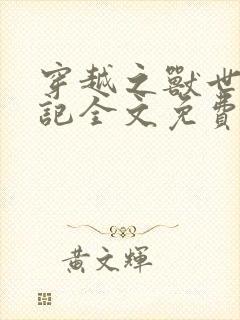 穿越之獸世
記全文免費
黃文輝